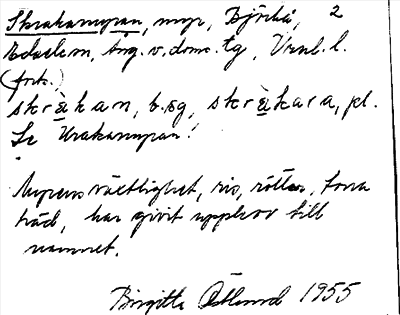 Skrakamyran, myr, Björkå, 2
Edselem, Ång. v. domr. tg, Vrnl. l.
(fork.)
skrakan, b.sg, skrakara, pl.
Se Urakamyran!
Myrens växtlighet, ris, rötter, torra
träd, har givit upphov till
namnet.
Birgitta Östlund 1955